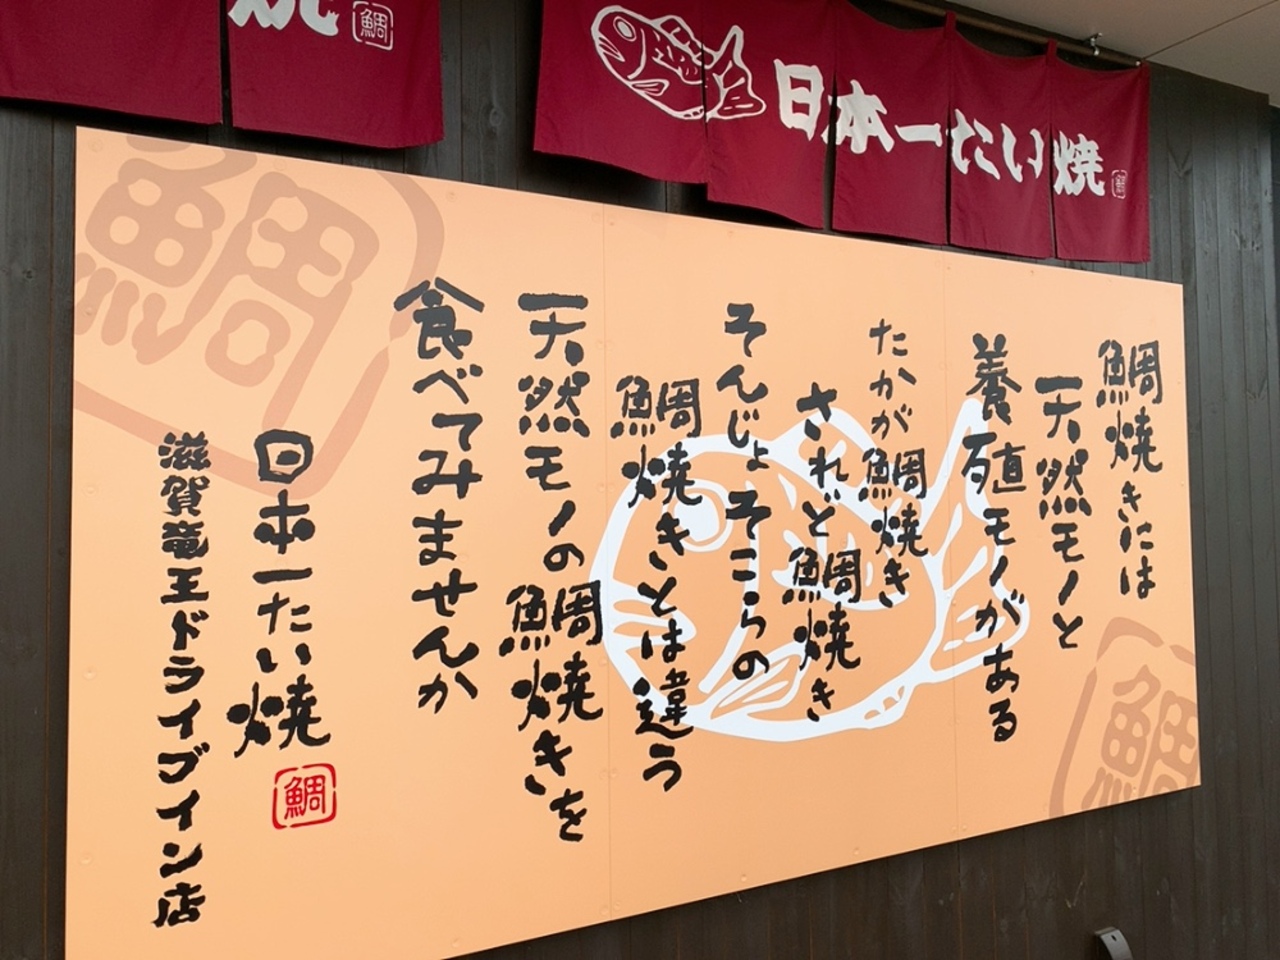 焼 鯛
日本一たい焼 鯛
鯛焼きには
天然モノと
養殖モノがある
たかが鯛焼き
されど鯛焼き
そんじょそこらの
鯛焼きとは違う
天然モノの鯛焼きを
食べてみませんか
日本一たい焼 鯛
滋賀竜王ドライブイン店
鯛
鯛